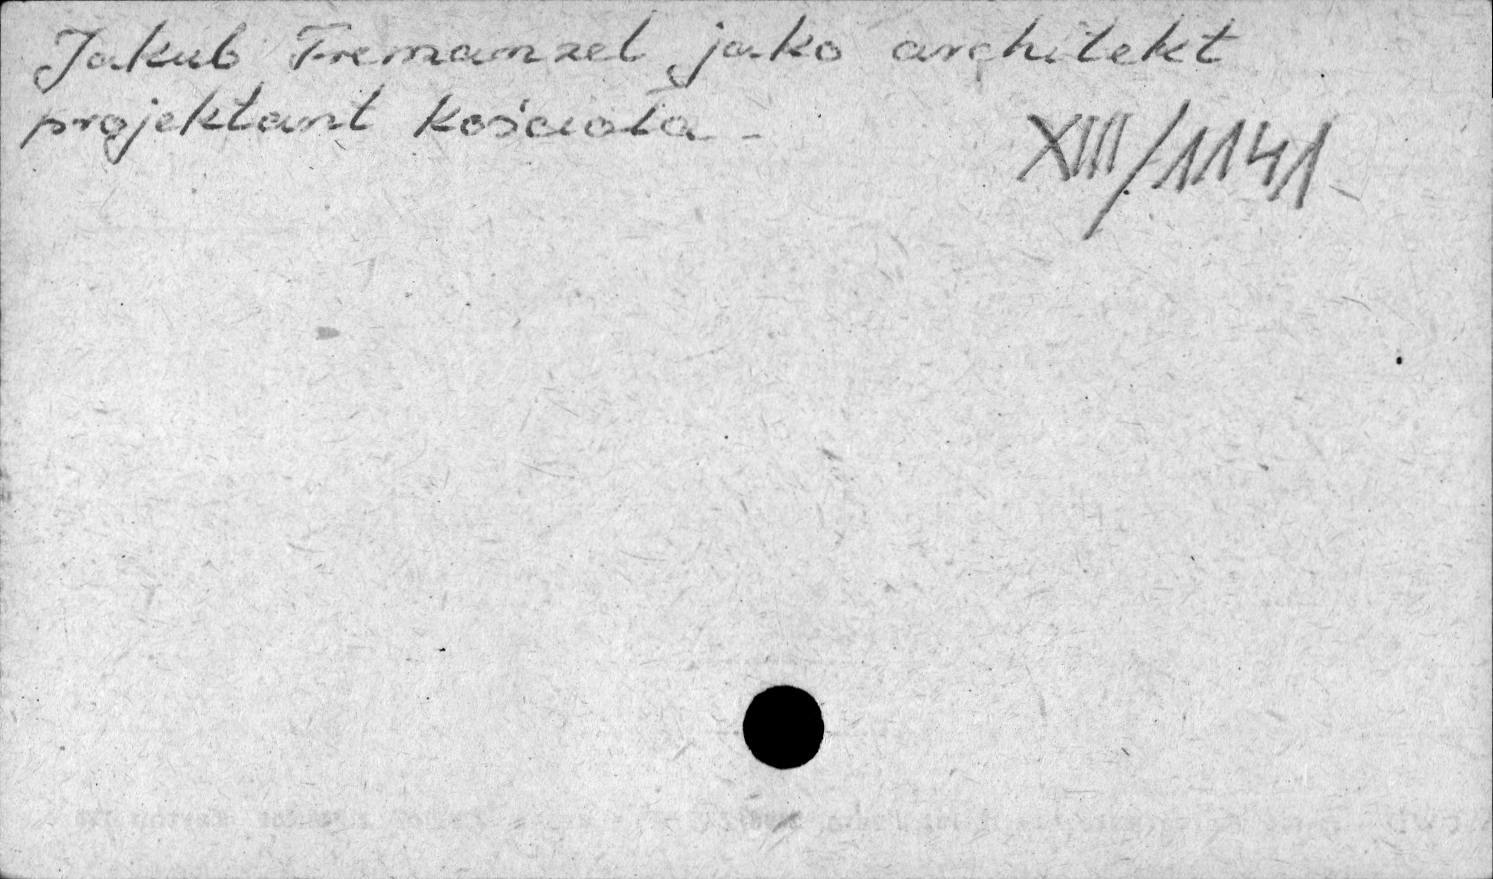 Jakub Fremanzel jako architekt
projektant kościoła -
XIII/1141